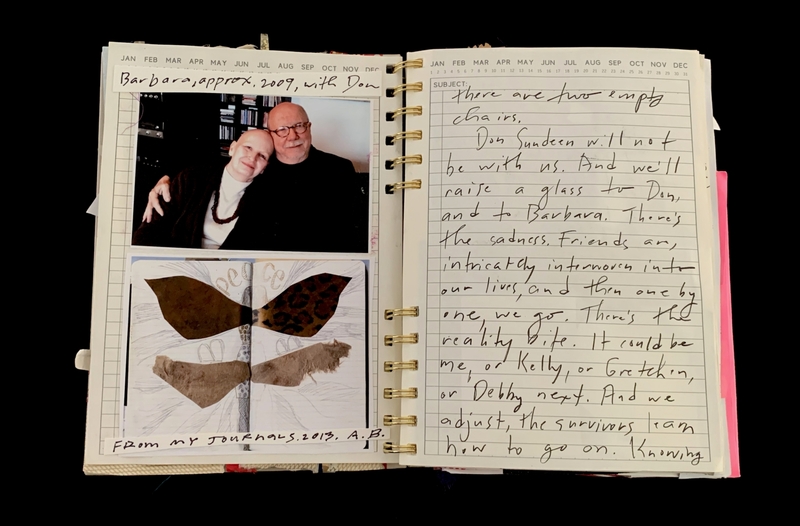 JAN FEB MAR APR MAY JUN JUL AUG SEP OCT NOV DEC
Barbara, approx. 2009, with Don
peace
FROM MY JOURNALS. 2013. A.B.
JAN FEB MAR APR MAY JUN JUL AUG SEP OCT NOV DEC
1 2 3 4 5 6 7 8 9 10 11 12 13 14 15 16 17 18 19 20 21 22 23 24 25 26 27 28 29 30 31
SUBJECT:
there are two empty
chairs.
Don Sundeen will not
be with us. And we'll
raise a glass to Don,
and to Barbara. There's
the sadness. Friends are,
intricately interwoven into
our lives, and then one by
one, we go. There's the
reality bite. It could be
me, or Kelly, or Gretchen,
or Debby next. And we
adjust, the survivors learn
how to go on. Knowing